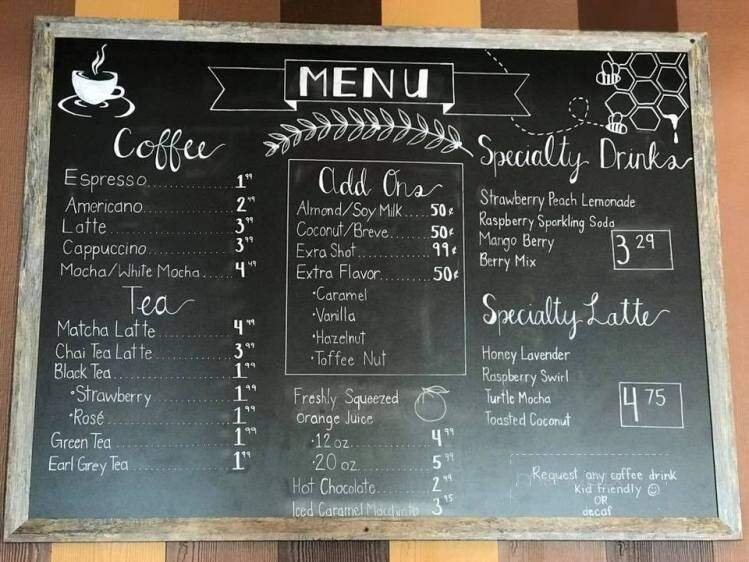 MENU
Coffee
Espresso 1.99
Americano 2.49
Latte 3.49
Cappuccino 3.49
Mocha/White Mocha 4.49
Tea
Matcha Latte 4.49
Chai Tea Latte 3.99
Black Tea 1.99
•Strawberry 1.99
•Rosé 1.99
Green Tea 1.99
Earl Grey Tea 1.99
Add Ons
Almond/Soy Milk 50¢
Coconut/Breve 50¢
Exra Shot 99¢
Extra Flavor 50¢
•Caramel
•Vanilla
•Hazelnut
•Toffee Nut
Freshly Squeezed
Orange Juice
•12 oz. 4.99
•20 oz. 5.99
Hot Chocolate 2.49
Iced Caramel Macchiato 3.95
Specialty Drinks
Strawberry Peach Lemonade
Raspberry Sparkling Soda
Mango Berry
Berry Mix
3 29
Specialty Latte
Honey Lavender
Raspberry Swirl
Turtle Mocha
Toasted Coconut
4 75
Request any coffee drink
Kid friendly ☺
OR
decaf